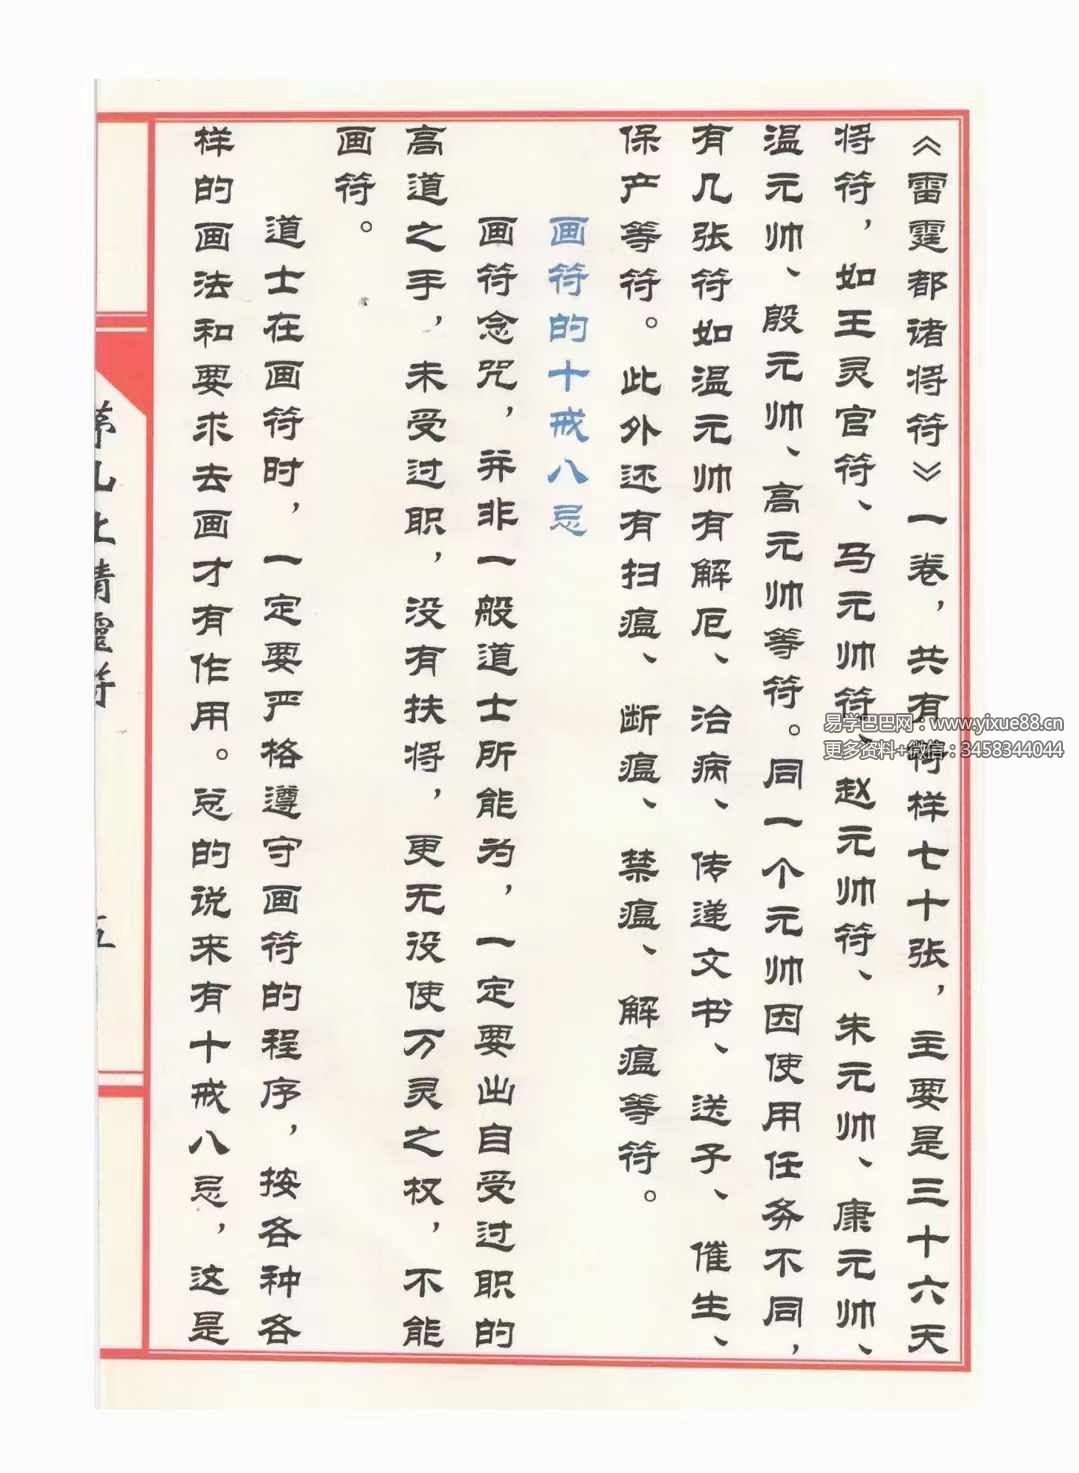 《雷霆都诸将符》一卷，共有符样七十张，主要是三十六天
将符，如王灵官符、马元帅符、赵元帅符、朱元帅、康元帅、
温元帅、殷元帅、高元帅等符。同一个元帅因使用任务不同，
有几张符如温元帅有解厄、治病、传递文书、送子、催生、
保产等符。此外还有扫瘟、断瘟、禁瘟、解瘟等符。
画符的十戒八忌
画符念咒，并非一般道士所能为，一定要出自受过职的
高道之手，未受过职，没有扶将，更无役使万灵之权，不能
画符。
道士在画符时，一定要严格遵守画符的程序，按各种各
样的画法和要求去画才有作用。总的说来有十戒八忌，这是
五
易学巴巴网：www.yixue88.cn
更多资料+微信：3458344044